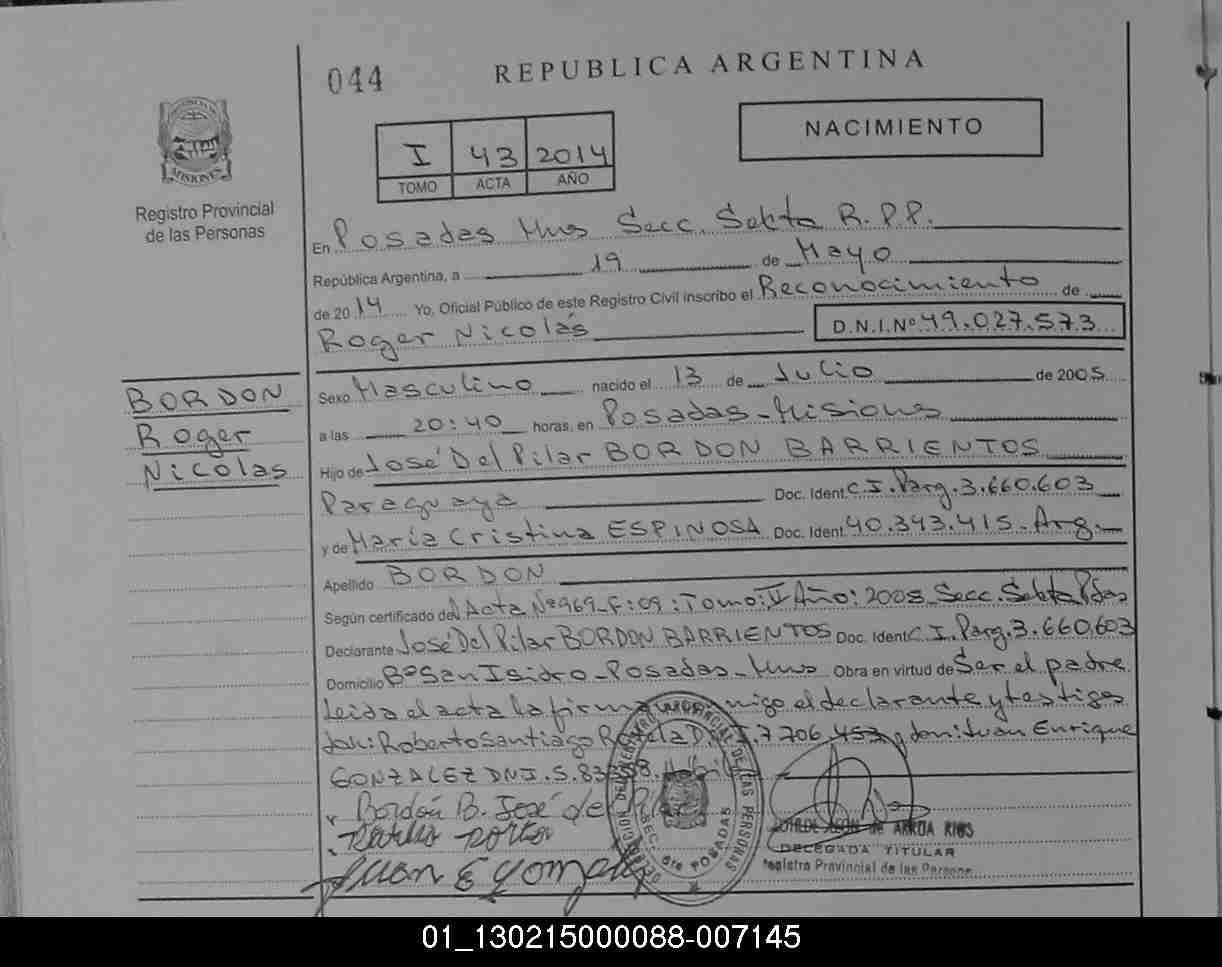 044
REPUBLICA ARGENTINA
NACIMIENTO
I 43 2014
TOMO ACTA AÑO
MISIONES
Registro Provincial
de las Personas
En Posadas Mns Secc. Sekta R.P.P.
República Argentina, a 19 de Mayo
de 2014 Yo, Oficial Público de este Registro Civil inscribo el Reconocimiento de
Roger Nicolás D.N.I.Nº 49.027.573
BORDON
Roger
Nicolas
Sexo Masculino nacido el 13 de Julio de 2005
a las 20:40 horas, en Posadas - Misiones
Hijo de José Del Pilar BORDON BARRIENTOS
Paraguaya Doc. Ident C.I. Parg. 3.660.603
y de María Cristina ESPINOSA Doc. Ident. 40.343.415 - Arg.
Apellido BORDON
Según certificado del Acta Nº 969 - F: 09 : Tomo: V Año: 2005 Secc. Sekta Pdas
Declarante José Del Pilar BORDON BARRIENTOS Doc. Ident C.I. Parg. 3.660.603
Domicilio Bº San Isidro - Posadas - Mns Obra en virtud de Ser el padre
Leida el acta la firma nmigo el declarante y testigos
Roberto Santiago 7.706.453 y don: Juan Enrique
GONZALEZ DNI.
Bordón B. José del
Juan E Gonzalez
DELEGACION DEL REGISTRO PROVINCIAL DE LAS PERSONAS
SEC. 6ta POSADAS
de ARRUA RIOS
DELEGADA TITULAR
Registro Provincial de las Persona
01_130215000088-007145